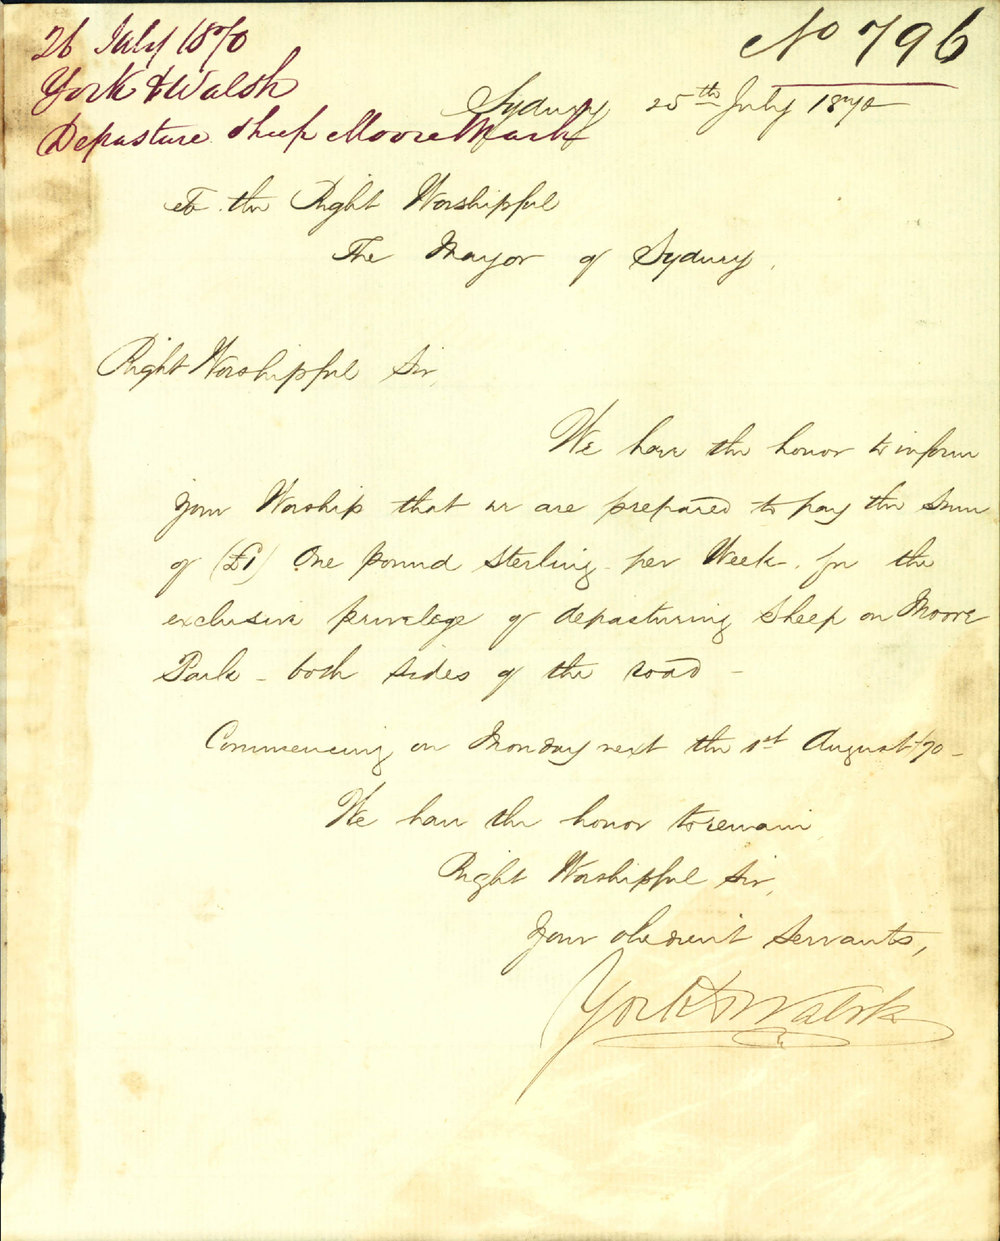 26 July 1870
No 796
York & Walsh
Sydney 25th July 1870
Depasture Sheep Moore Park
To the Right Worshipful
The Mayor of Sydney.
Right Worshipful Sir,
We have the honor to inform
your Worship that we are prepared to pay the Sum
of (£1) One pound Sterling per Week. for the
exclusive privelege of depasturing Sheep on Moore
Park - both sides of the road -
Commencing on Monday next the 1st August /70 -
We have the honor to remain
Right Worshipful Sir,
Your obedient Servants,
York & Walsh